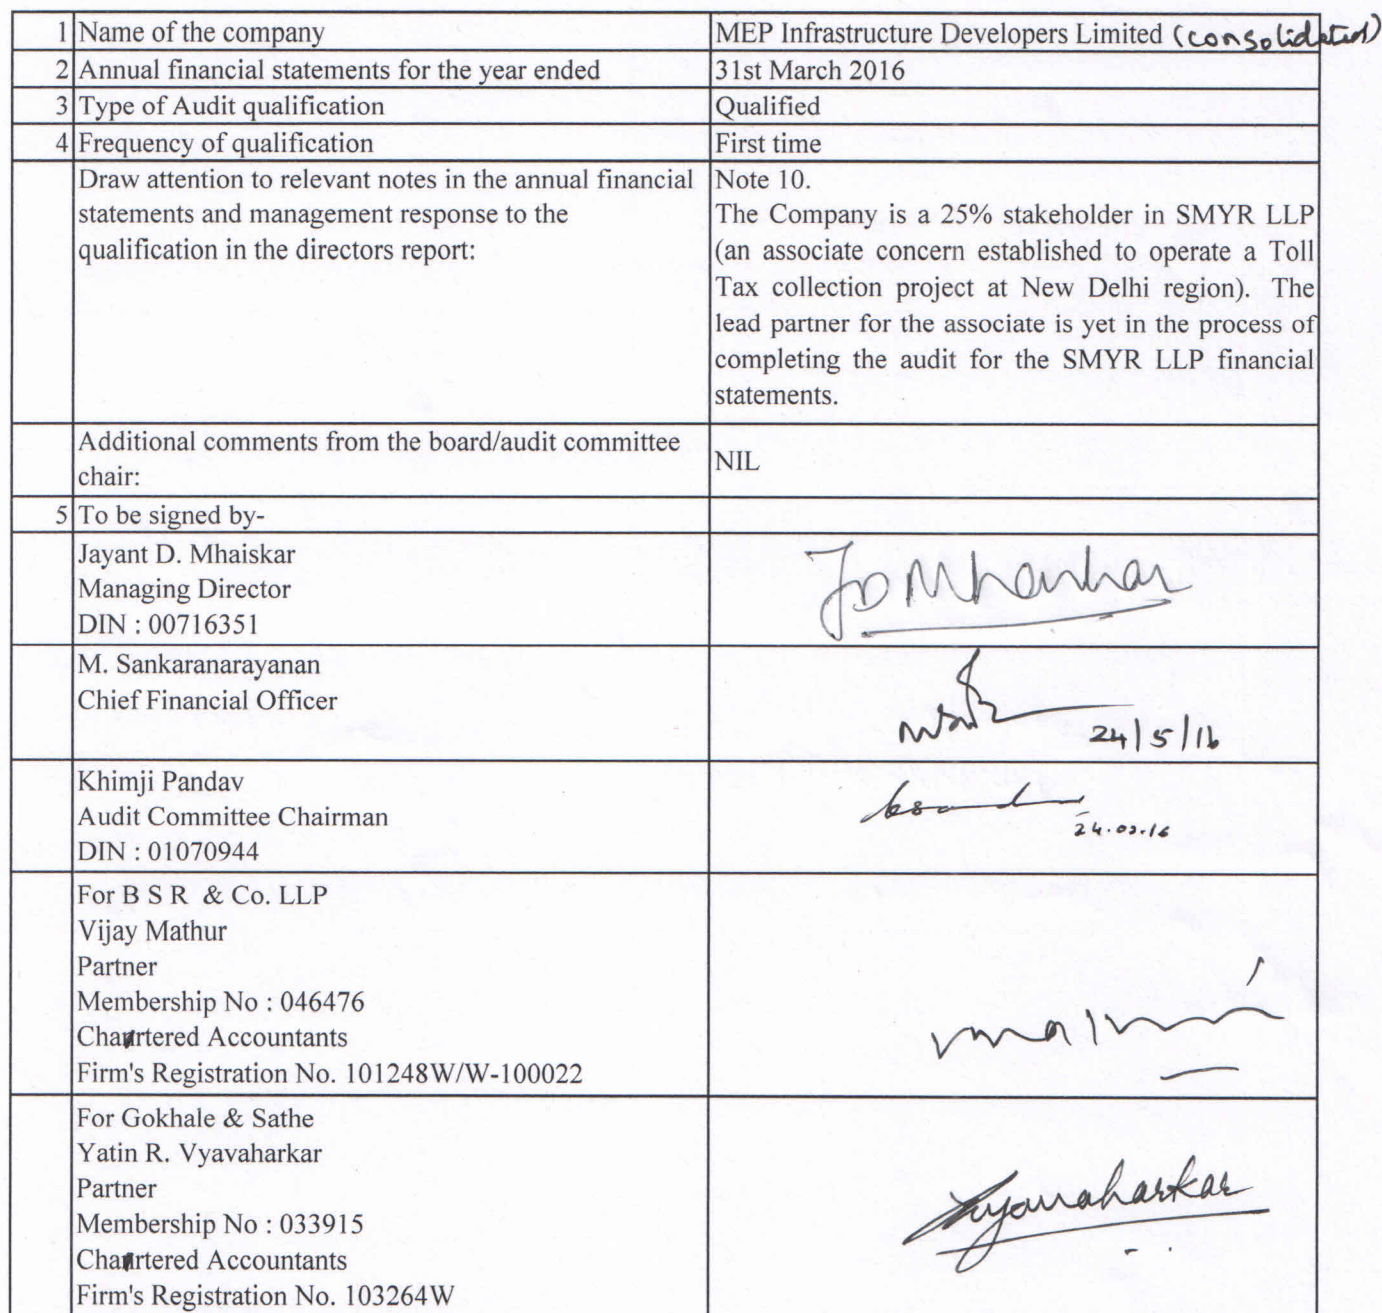 1 Name of the company MEP Infrastructure Developers Limited (consolidated)
2 Annual financial statements for the year ended 31st March 2016
3 Type of Audit qualification Qualified
4 Frequency of qualification First time
Draw attention to relevant notes in the annual financial
statements and management response to the
qualification in the directors report:
Note 10.
The Company is a 25% stakeholder in SMYR LLP
(an associate concern established to operate a Toll
Tax collection project at New Delhi region). The
lead partner for the associate is yet in the process of
completing the audit for the SMYR LLP financial
statements.
Additional comments from the board/audit committee
chair:
NIL
5 To be signed by-
Jayant D. Mhaiskar
Managing Director
DIN : 00716351
JDMhaiskar
M. Sankaranarayanan
Chief Financial Officer
24/5/16
Khimji Pandav
Audit Committee Chairman
DIN : 01070944
For B S R & Co. LLP
Vijay Mathur
Partner
Membership No : 046476
Charrtered Accountants
Firm's Registration No. 101248W/W-100022
For Gokhale & Sathe
Yatin R. Vyavaharkar
Partner
Membership No : 033915
Charrtered Accountants
Firm's Registration No. 103264W
Vyavaharkar